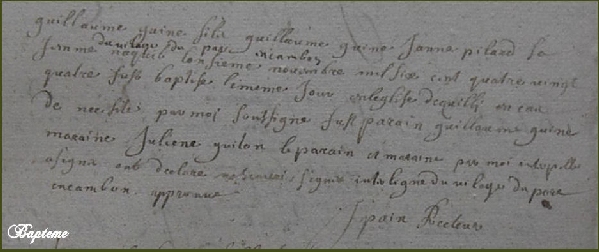 guillaume guine fils guillaume guine janne pilard sa
du vilage du parc encambon
famme naquit lonsieme novembre mil six cent quatre vingt
quatre fust baptise le meme jour en leglise de quilli en cas
de necesite par moi soussigne fust parain guillaume guine
maraine Juliene guiton le parain et maraine par moi interpelle
a signe ont declare ne signer interligne du vilage du parc
encambon approuve
Recteur
Bapteme